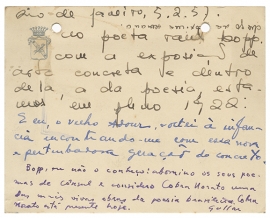 Rio de Janeiro, 5, 2, 57.
ao poeta raul bopp.
com a exposição de
arte concreta e dentro
dela, a da poesia, esta-
mos, em pleno 1922:
E eu, o velho volvi à infân-
cia incontrando-me com essa nova
e perturbadora geração do concreto.
Bopp, eu não o conheço: abomino os seus poe-
mas de cônsul e considero Cobra Norato uma
das mais vivas obras da poesia brasileira. Cobra
Norato até morte hoje. Gullar